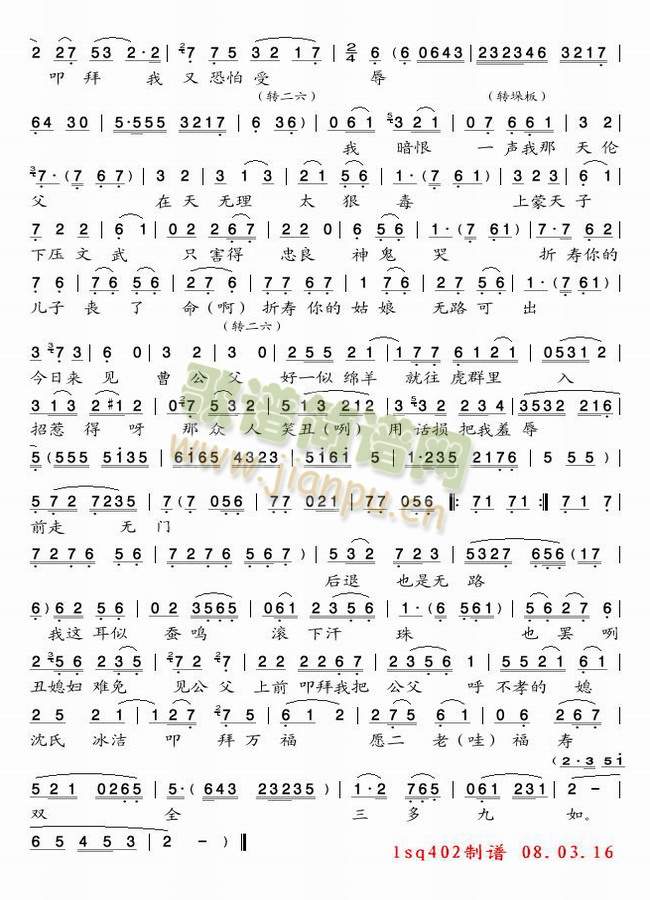 2 27 53 2·2 | 27 75 32 17 | 2/4 6 (6 0643 | 232346 3217 |
叩拜 我又恐怕受 辱
(转二六) (转垛板)
64 30 | 5·555 3217 | 6 36) | 061 321 | 07 661 | 32 |
我 暗恨 一声我那天伦
7·(7 67) | 32 | 313 | 21 56 | 1·(7 61) | 32 12 |
父 在天无理太狠毒 上蒙天子
72 22 | 61 | 02 267 | 02 72 | 67 65 | 1·(7 61) | 7·7 62 |
下压文武 只害得 忠良神鬼哭 折寿你的
76 | 76 56 | 727 | 77 67 | 776 | 27 56 | 1·(7 61) |
儿子丧了命(啊)折寿你的姑娘无路可出
(转二六)
3 73 | 6 0 | 32 | 3 0 | 255 21 | 177 6121 | 0531 2 |
今日来见曹公父 好一似绵羊 就往虎群里 入
招惹得呀 那众人笑丑(咧)用话损把我羞辱
5(555 5135 | 6165 4323 | 5161 5 | 1·235 2176 | 5 55) |
572 7235 | 7(7 056 | 77 021 | 77 056 ‖: 71 71 :‖ 71 7 |
前走 无门
7276 56 | 7276 567) | 532 | 723 | 5327 656(17 |
后退 也是无路
6) 62 56 | 02 3565 | 061 2356 | 1·(6 561) | 562 76 |
我这耳似 蚕鸣 滚下汗 珠 也罢咧
丑媳妇难免 见公父上前叩拜我把公父 呼不孝的媳
25 21 | 127 | 727 56 | 61 2 | 275 61 | 06 267 |
沈氏 冰洁 叩拜万福 愿二老(哇)福寿
(2·3 51
521 0265 | 5·(643 23235 | 1·2 765 | 061 231 | 2 - |
双 全 三多九如。
65 453 | 2 -) ‖
歌谱简谱网
www.jianpu.cn
lsq402制谱 08.03.16